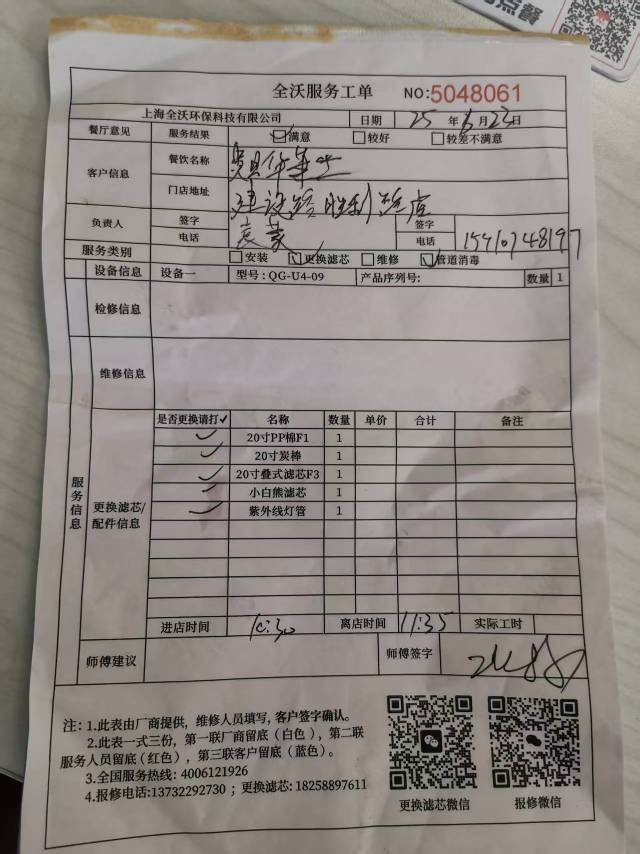 点餐
全沃服务工单 NO:5048061
上海全沃环保科技有限公司 日期 25 年 6 月 23 日
餐厅意见 服务结果 ☑满意 □较好 □较差不满意
客户信息 餐饮名称
门店地址 建设路胜利路店
负责人 签字 签字
电话 电话 15410748197
服务类别 □安装 ☑更换滤芯 □维修 ☑管道消毒
设备信息 设备一 型号: QG-U4-09 产品序列号: 数量 1
检修信息
维修信息
服务信息
更换滤芯/配件信息
是否更换请打✓ 名称 数量 单价 合计 备注
✓ 20寸PP棉F1 1
✓ 20寸炭棒 1
✓ 20寸叠式滤芯F3 1
✓ 小白熊滤芯 1
✓ 紫外线灯管 1
进店时间 10:30 离店时间 11:35 实际工时
师傅建议 师傅签字
注: 1.此表由厂商提供，维修人员填写, 客户签字确认。
2.此表一式三份，第一联厂商留底（白色），第二联
服务人员留底(红色），第三联客户留底（蓝色）。
3.全国服务热线: 4006121926
4.报修电话:13732292730 ；更换滤芯: 18258897611
更换滤芯微信 报修微信